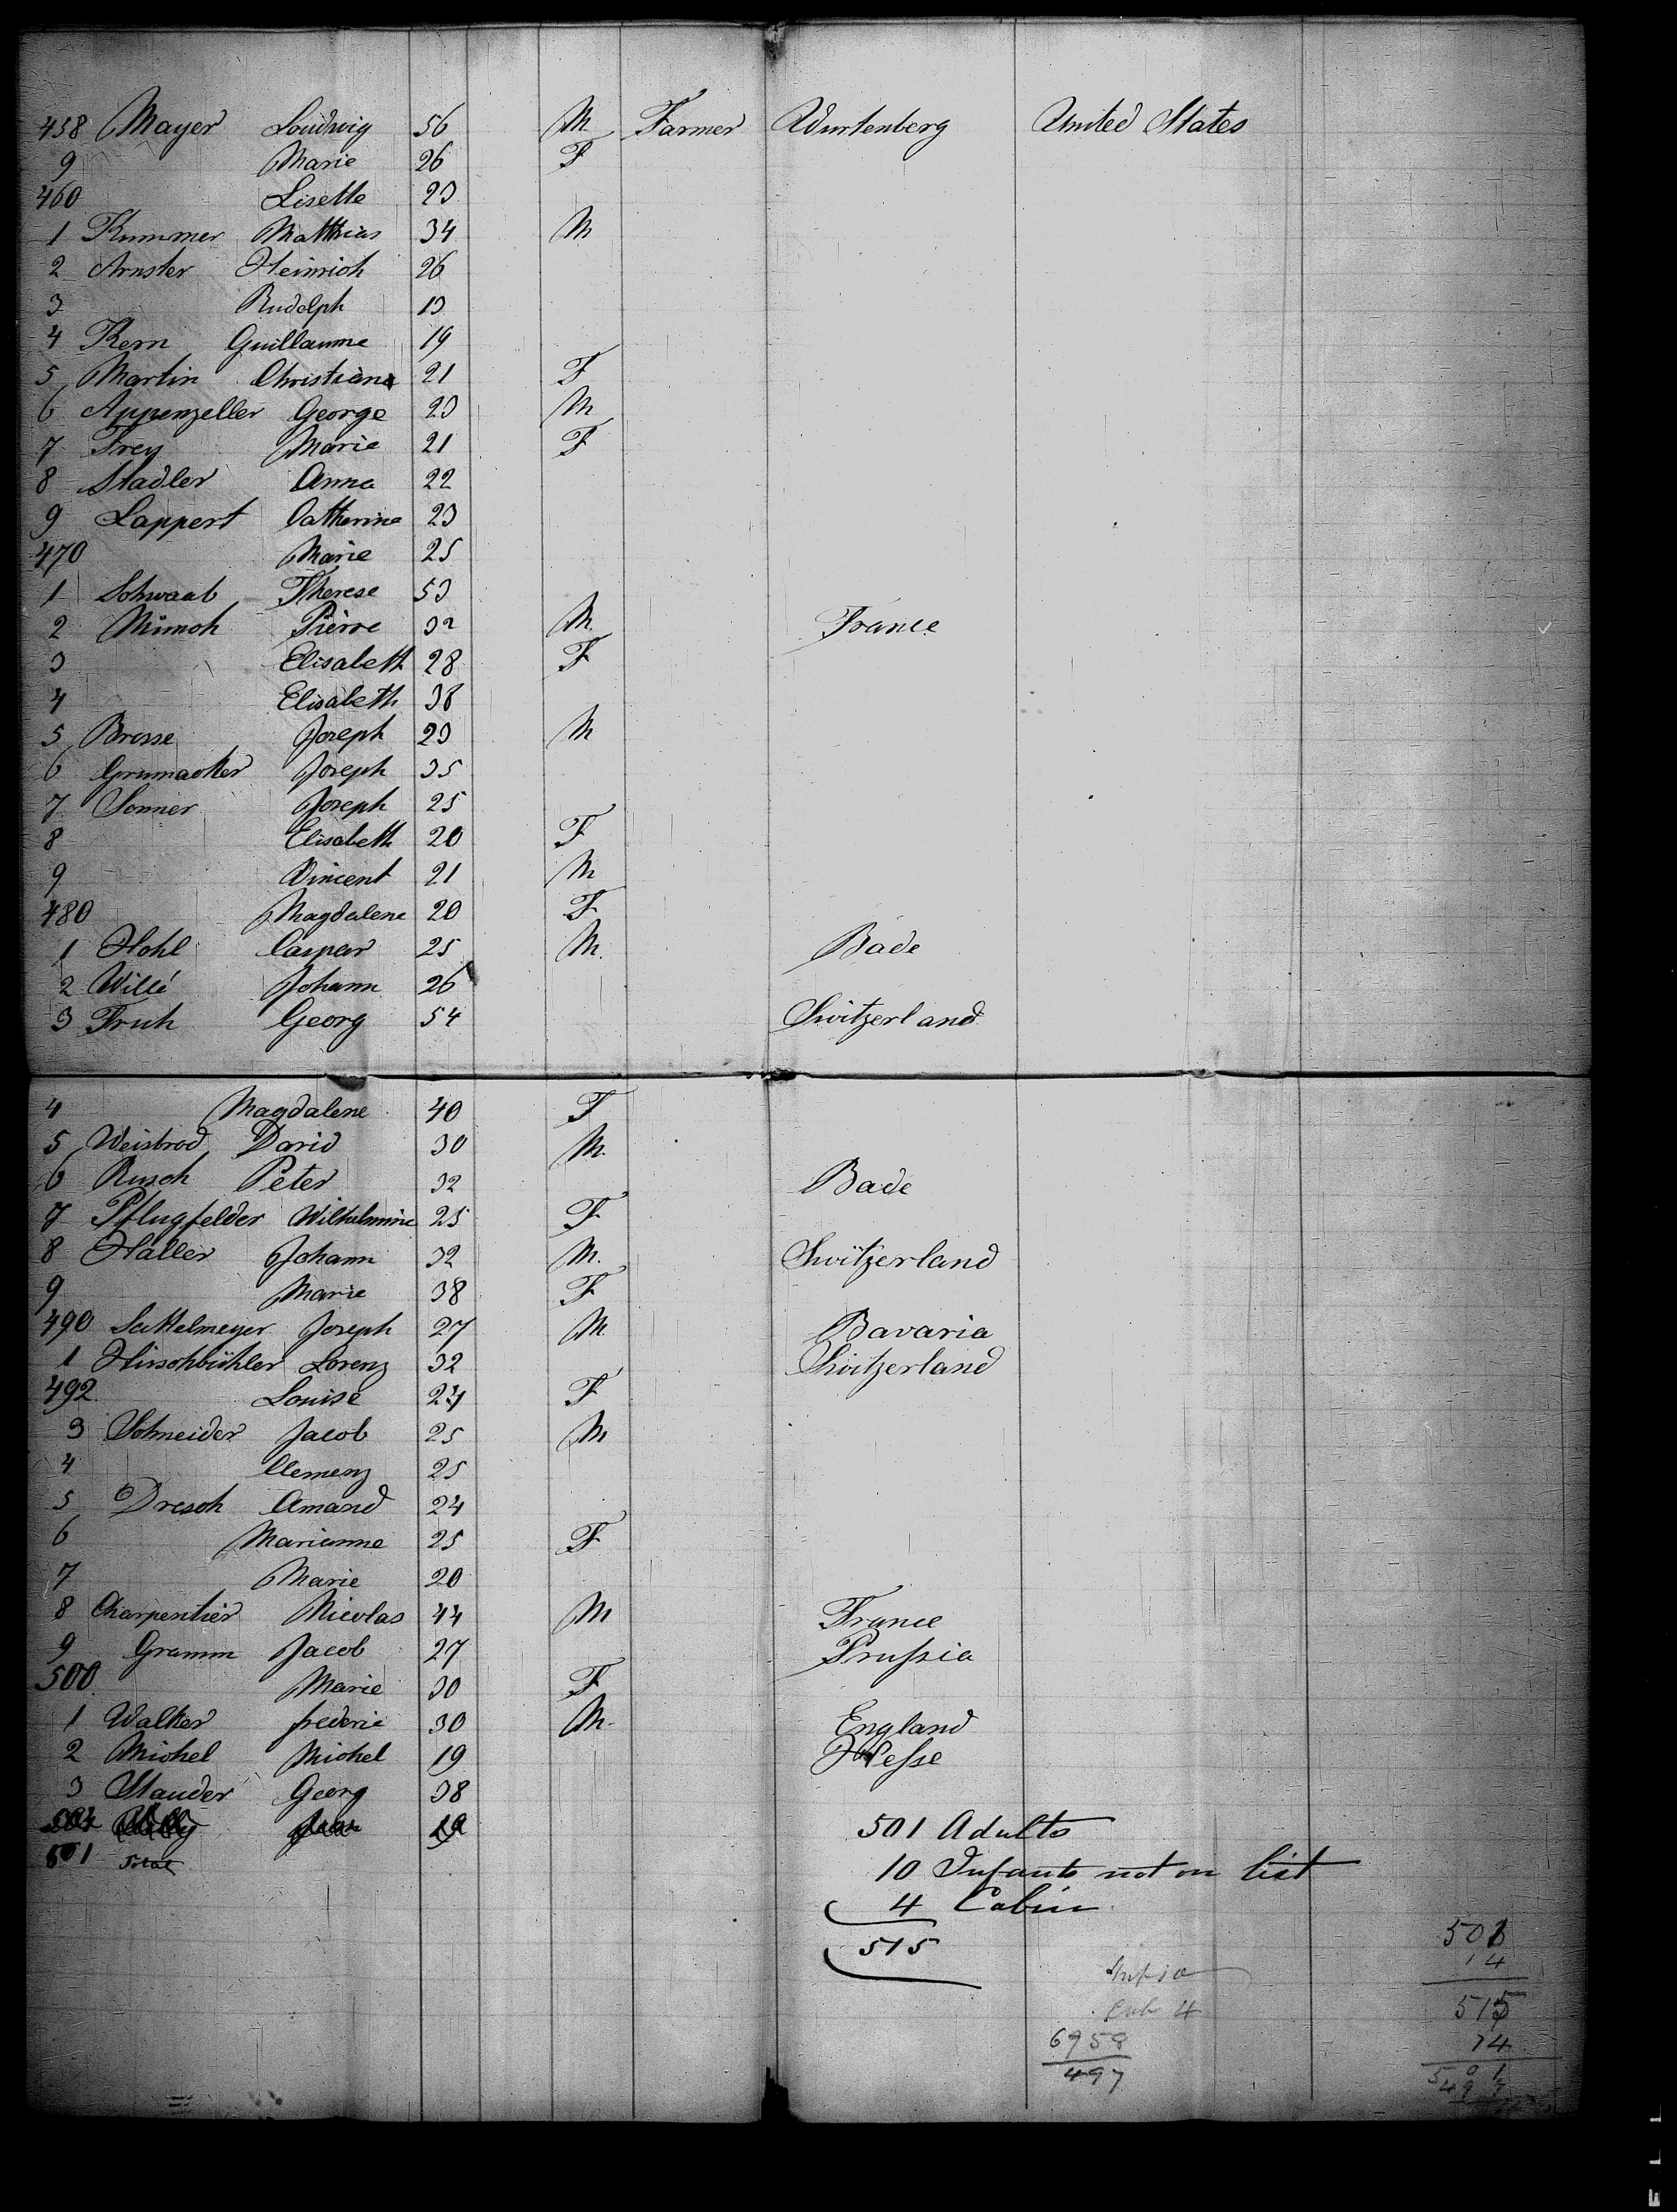 458 Mayer Loudwig 56 M Farmer Wurtenberg United States
9 Marie 26 F
460 Lisette 23
1 Kummer Matthias 34 M
2 Arnster Heinrich 26
3 Rudolph 13
4 Kern Guillaume 19
5 Martin Christiana 21 F
6 Appenzeller George 23 M
7 Frey Marie 21 F
8 Stadler Anna 22
9 Lappert Catherine 23
470 Marie 25
1 Schwaab Therese 53
2 Mimoh Pierre 32 M France
3 Elisabeth 28 F
4 Elisabeth 38
5 Brosse Joseph 23 M
6 Grumacker Joseph 35
7 Sonner Joseph 25
8 Elisabeth 20 F
9 Vincent 21 M
480 Magdalene 20 F
1 Hohl Caspar 25 M. Bade
2 Willé Johann 26
3 Fruh Georg 54 Switzerland
4 Magdalene 40 F
5 Weisbrod David 30 M.
6 Rusch Peter 32 Bade
7 Pflugfelder Wilhelmine 25 F
8 Haller Johann 32 M. Switzerland
9 Marie 38 F
490 Sattelmeyer Joseph 27 M Bavaria
1 Hirschbühler Lorenz 32 Switzerland
492 Louise 24 F
3 Schneider Jacob 25 M
4 Clemenz 25
5 Dresch Amand 24
6 Marianne 25 F
7 Marie 20
8 Charpentier Nicolas 44 M France
9 Gramm Jacob 27 Prussia
500 Marie 30 F
1 Walker frederic 30 M. England
2 Michel Michel 19 Hesse
3 Stauder Georg 38
501 Adults
501 Total
10 Infants not on list
4 Cabin
515
501
14
515
14
501
497
Inf 10
Cab 4
6958
497